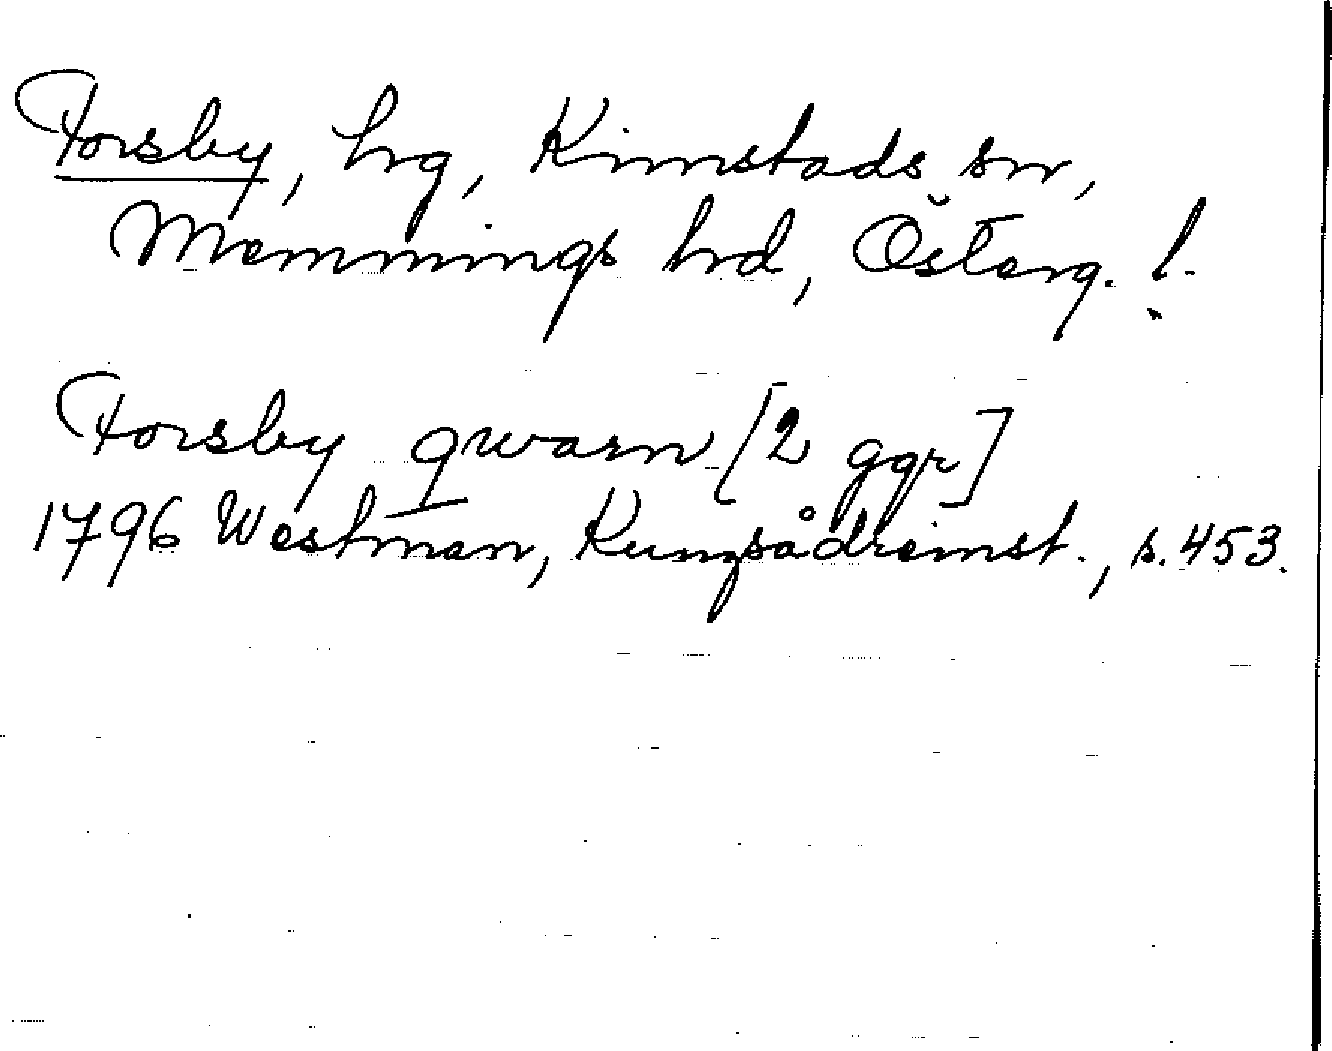 Forsby, hg, Kimstads sn,
Memmings hd, Österg. l.
Forsby qwarn [2 ggr]
1796 Westman, Kungsådreinst., s. 453.